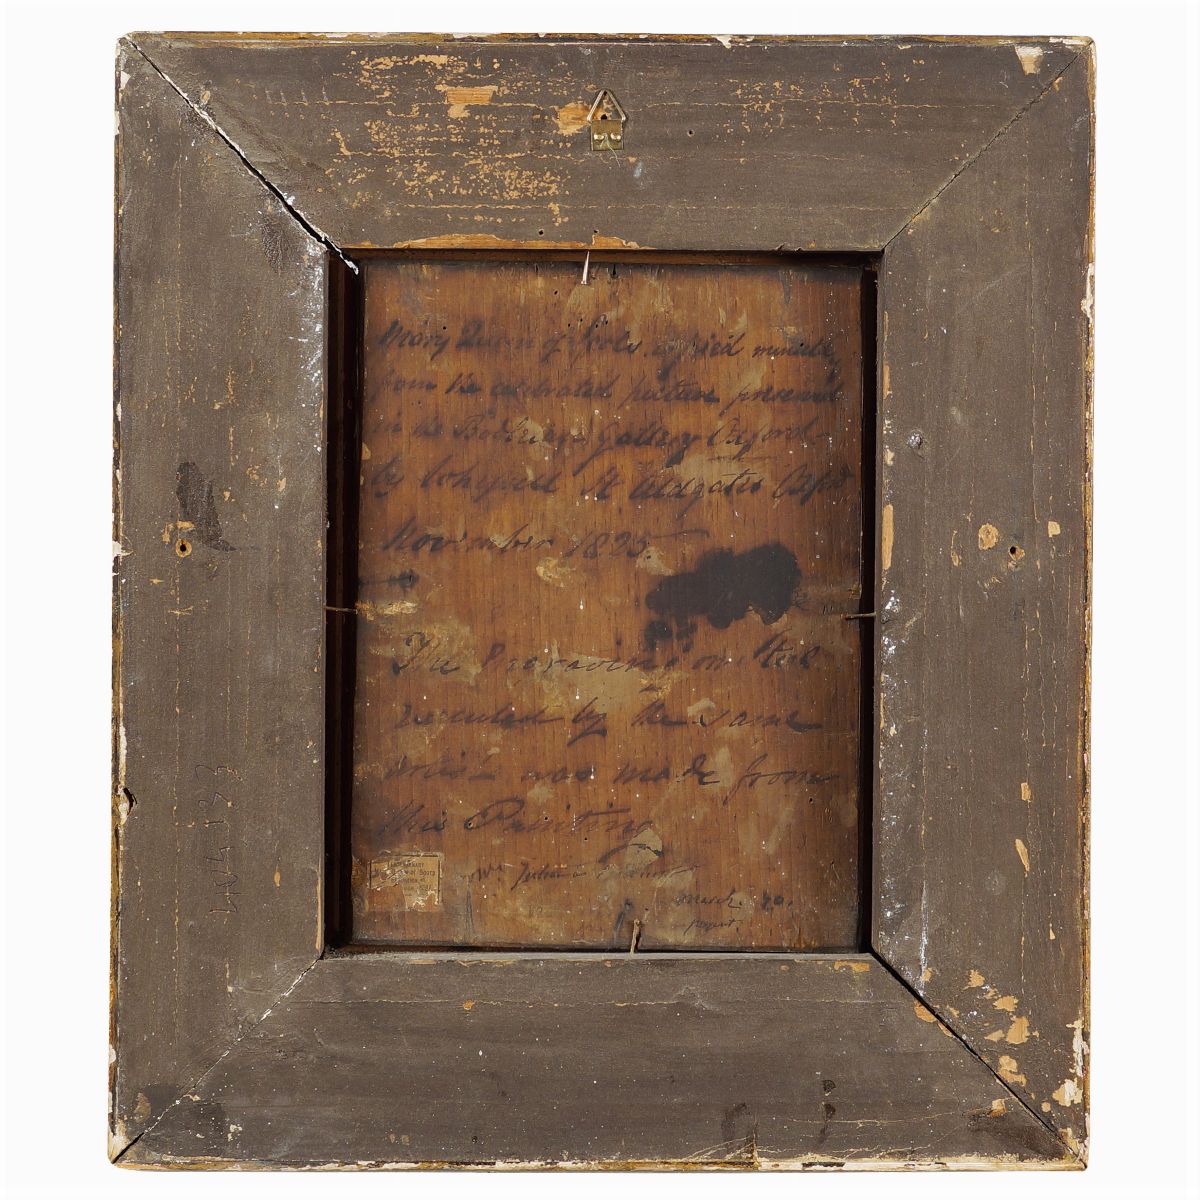 Mary Queen of Scots copied minutely
from the celebrated picture preserv'd
in the Bodleian Gallery Oxford
by Whessell St Aldgates Oxford
November 1825.
The Engraving on Steel
executed by the same
artist was made from
this Painting
Wm
March. 70.